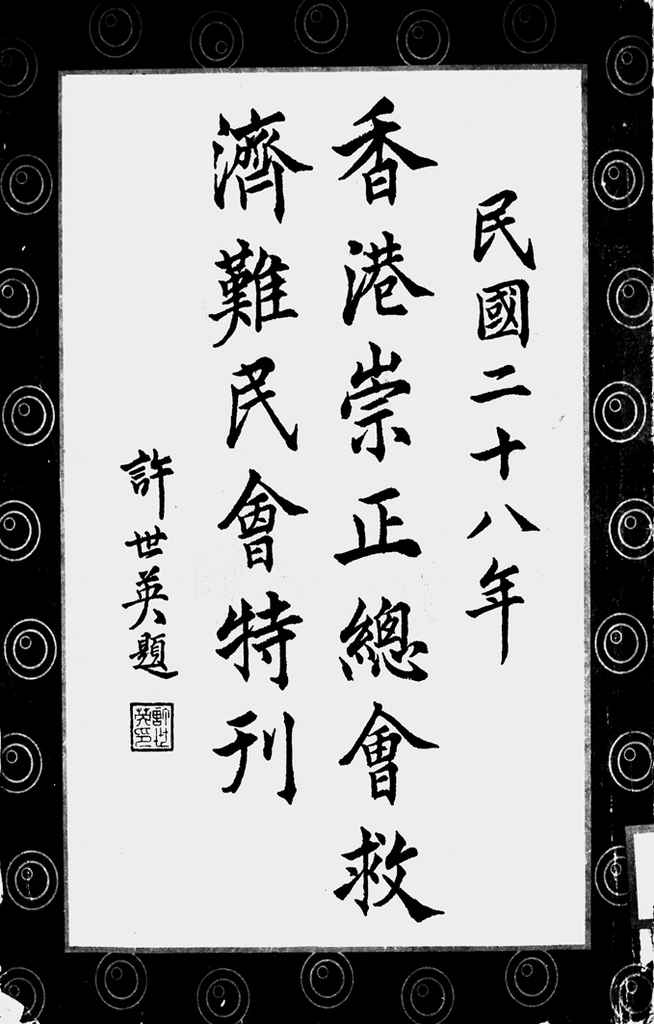 民國二十八年
香港崇正總會救
濟難民會特刊
許世英題
許世英印